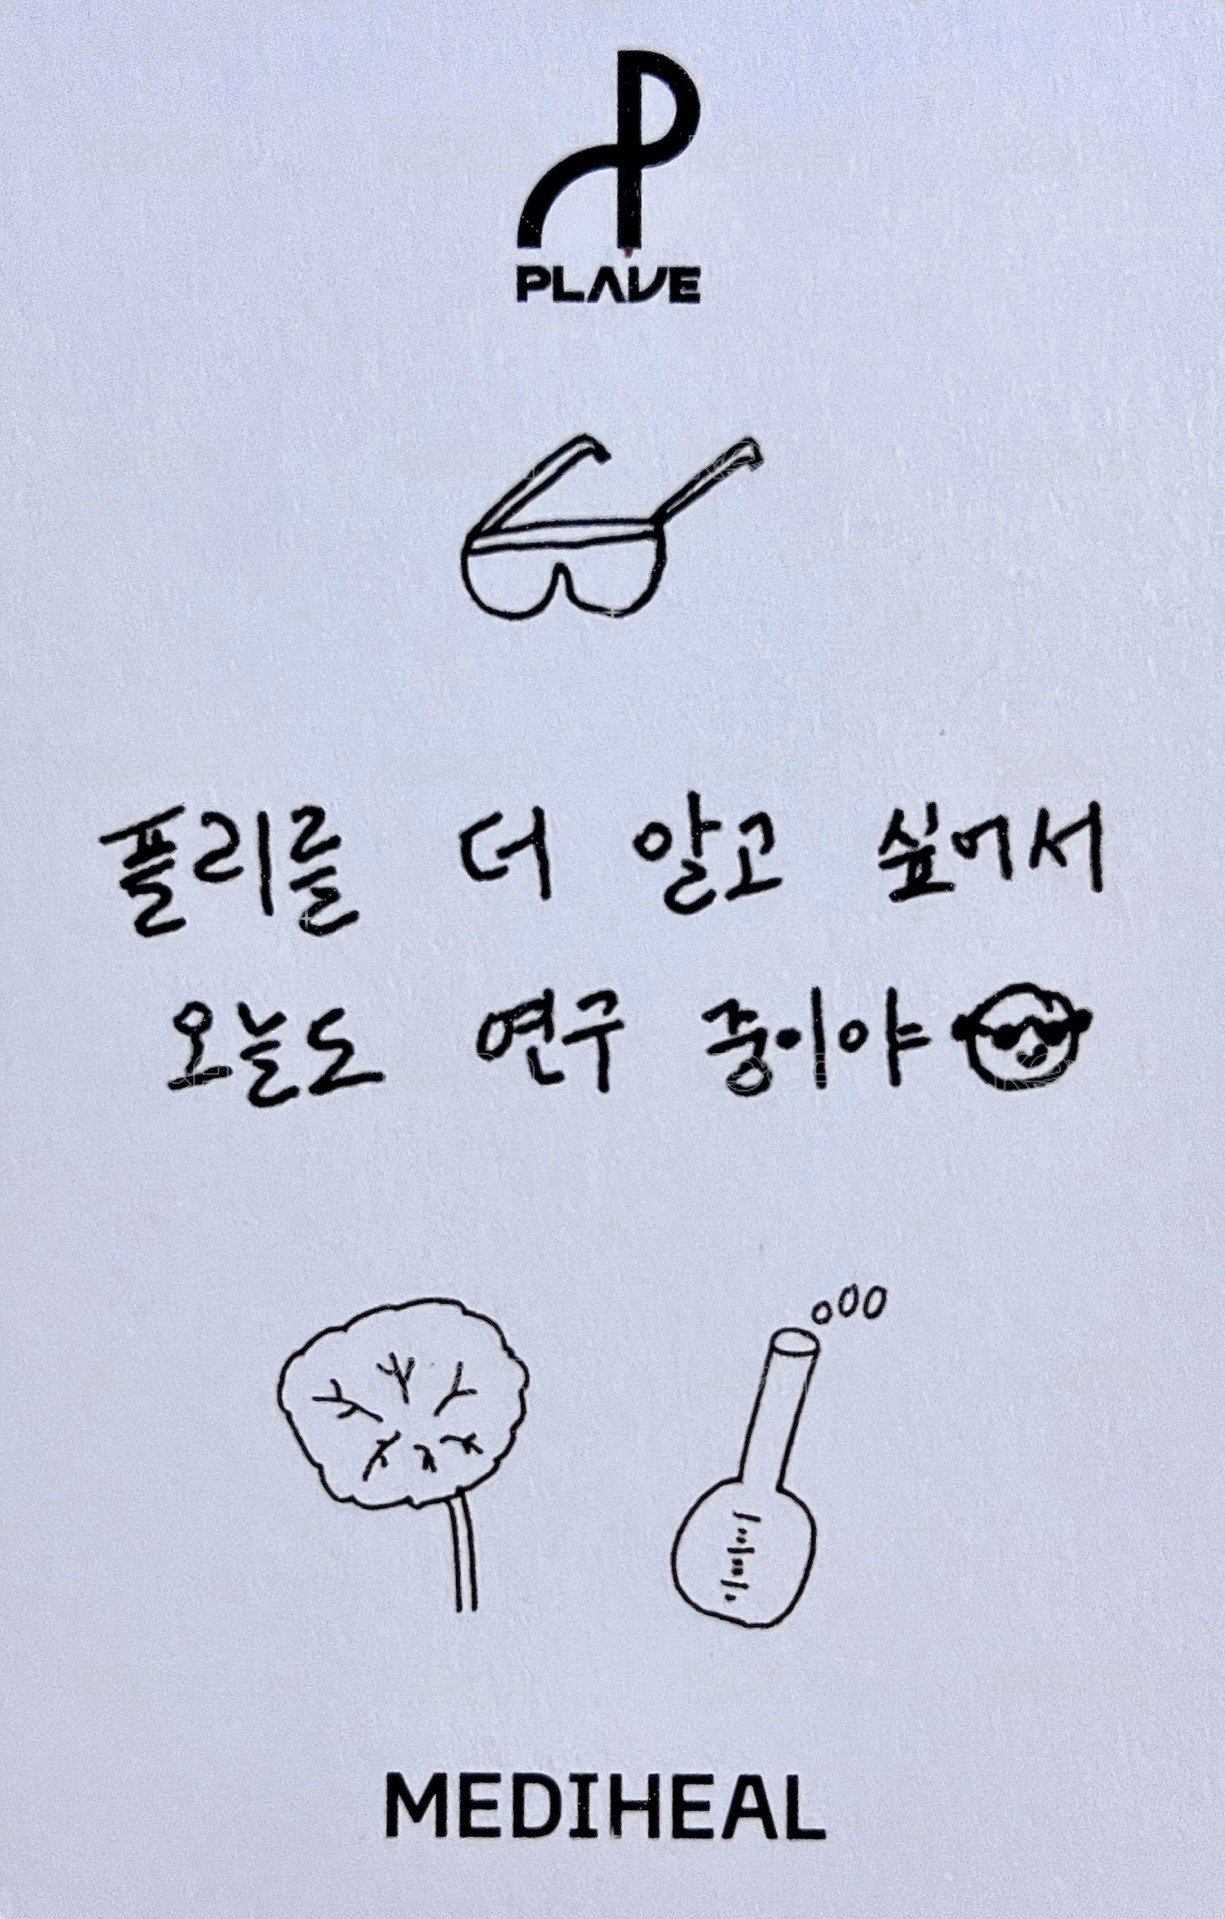 PLAVE
플리를 더 알고 싶어서
오늘도 연구 중이야
MEDIHEAL